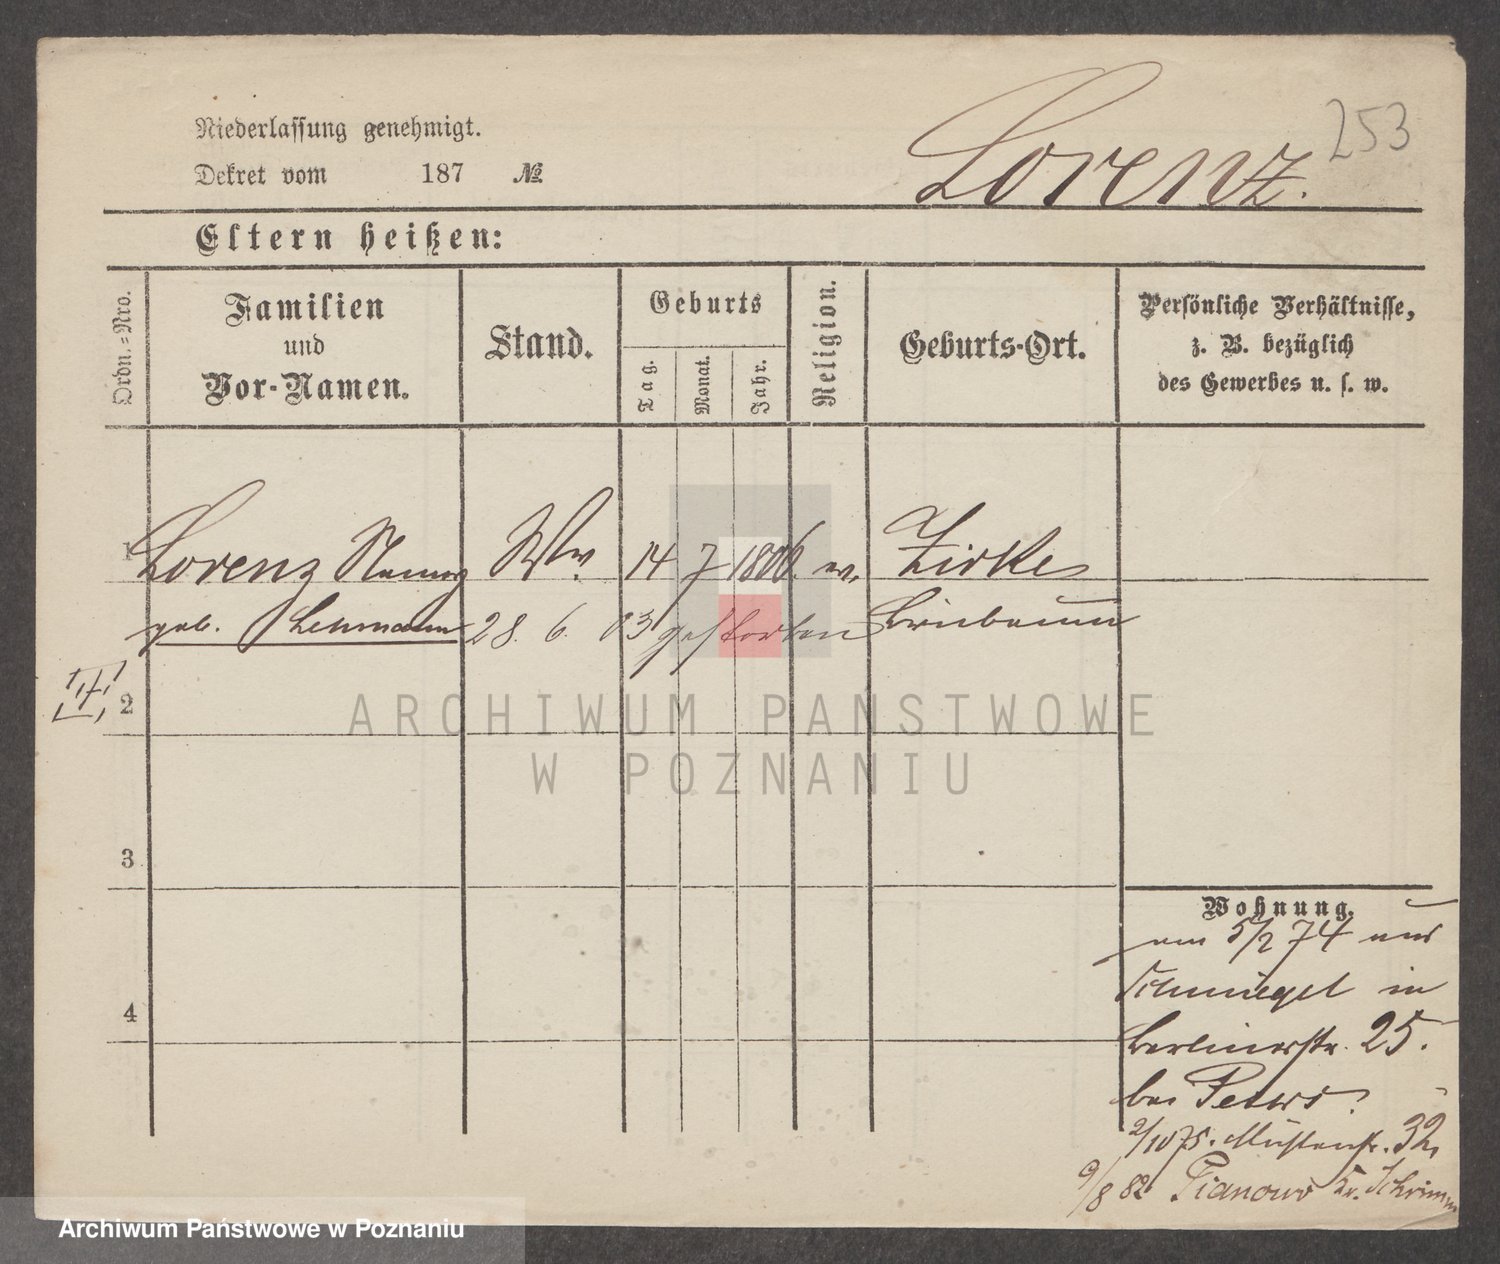 253
Niederlassung genehmigt.
Dekret vom 187 №
Lorenz.
Eltern heißen:
Ordn.=Nro.
Familien
und
Vor-Namen.
Stand.
Geburts
Tag.
Monat.
Jahr.
Religion.
Geburts-Ort.
Persönliche Verhältnisse,
z. B. bezüglich
des Gewerbes u. s. w.
1 Lorenz Wwe. 14 7 1806. ev. Zirke
geb. Lehmann 28. 6. 83 gestorben Birnbaum
2
ARCHIWUM PAŃSTWOWE
W POZNANIU
3
Wohnung.
am 5/2 74 aus
Schmiegel in
4
Berlinerstr. 25.
bei
2/10 75. 32.
9/8 82 Pianowo Kr. Schrimm
Archiwum Państwowe w Poznaniu